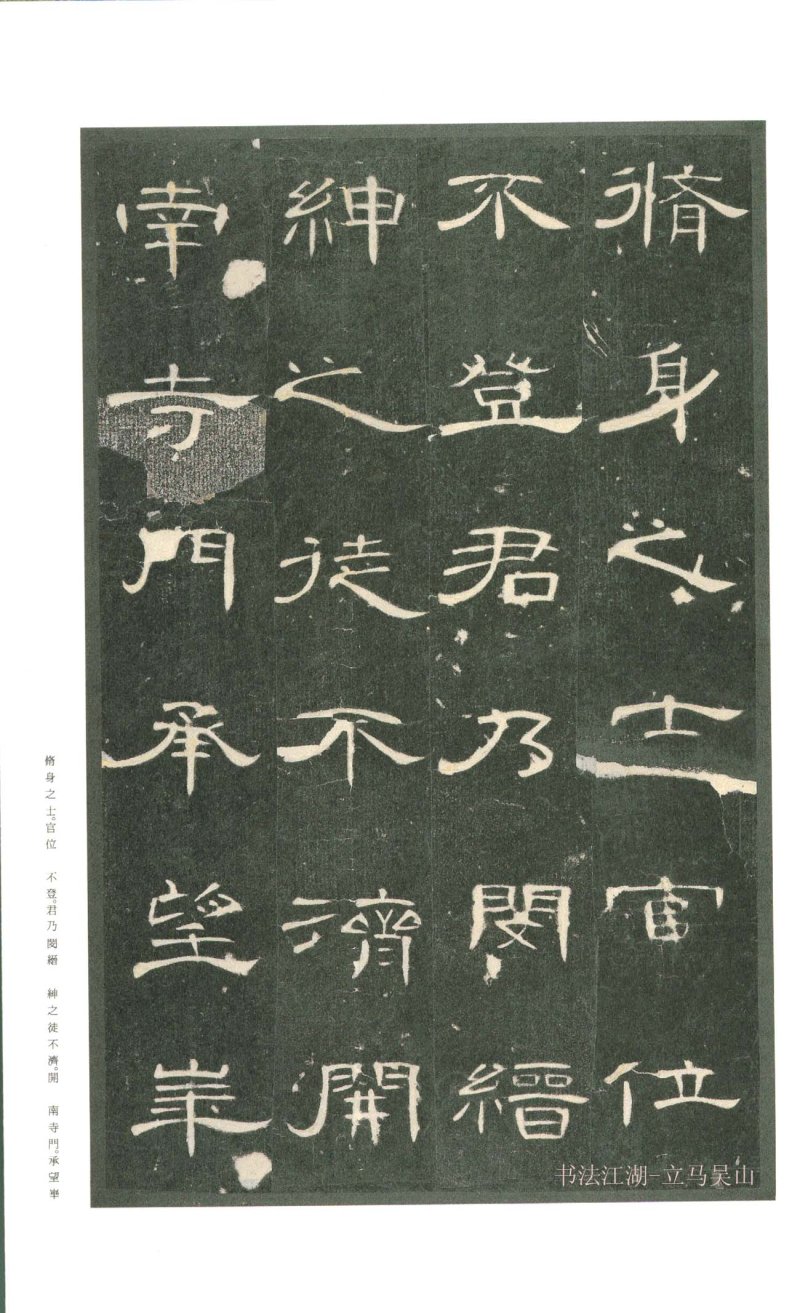 脩身之士官位
不登君乃閔縉
紳之徒不濟開
南寺門承望華
脩身之士。官位　不登。君乃閔縉　紳之徒不濟。開　南寺門。承望華
书法江湖-立马吴山